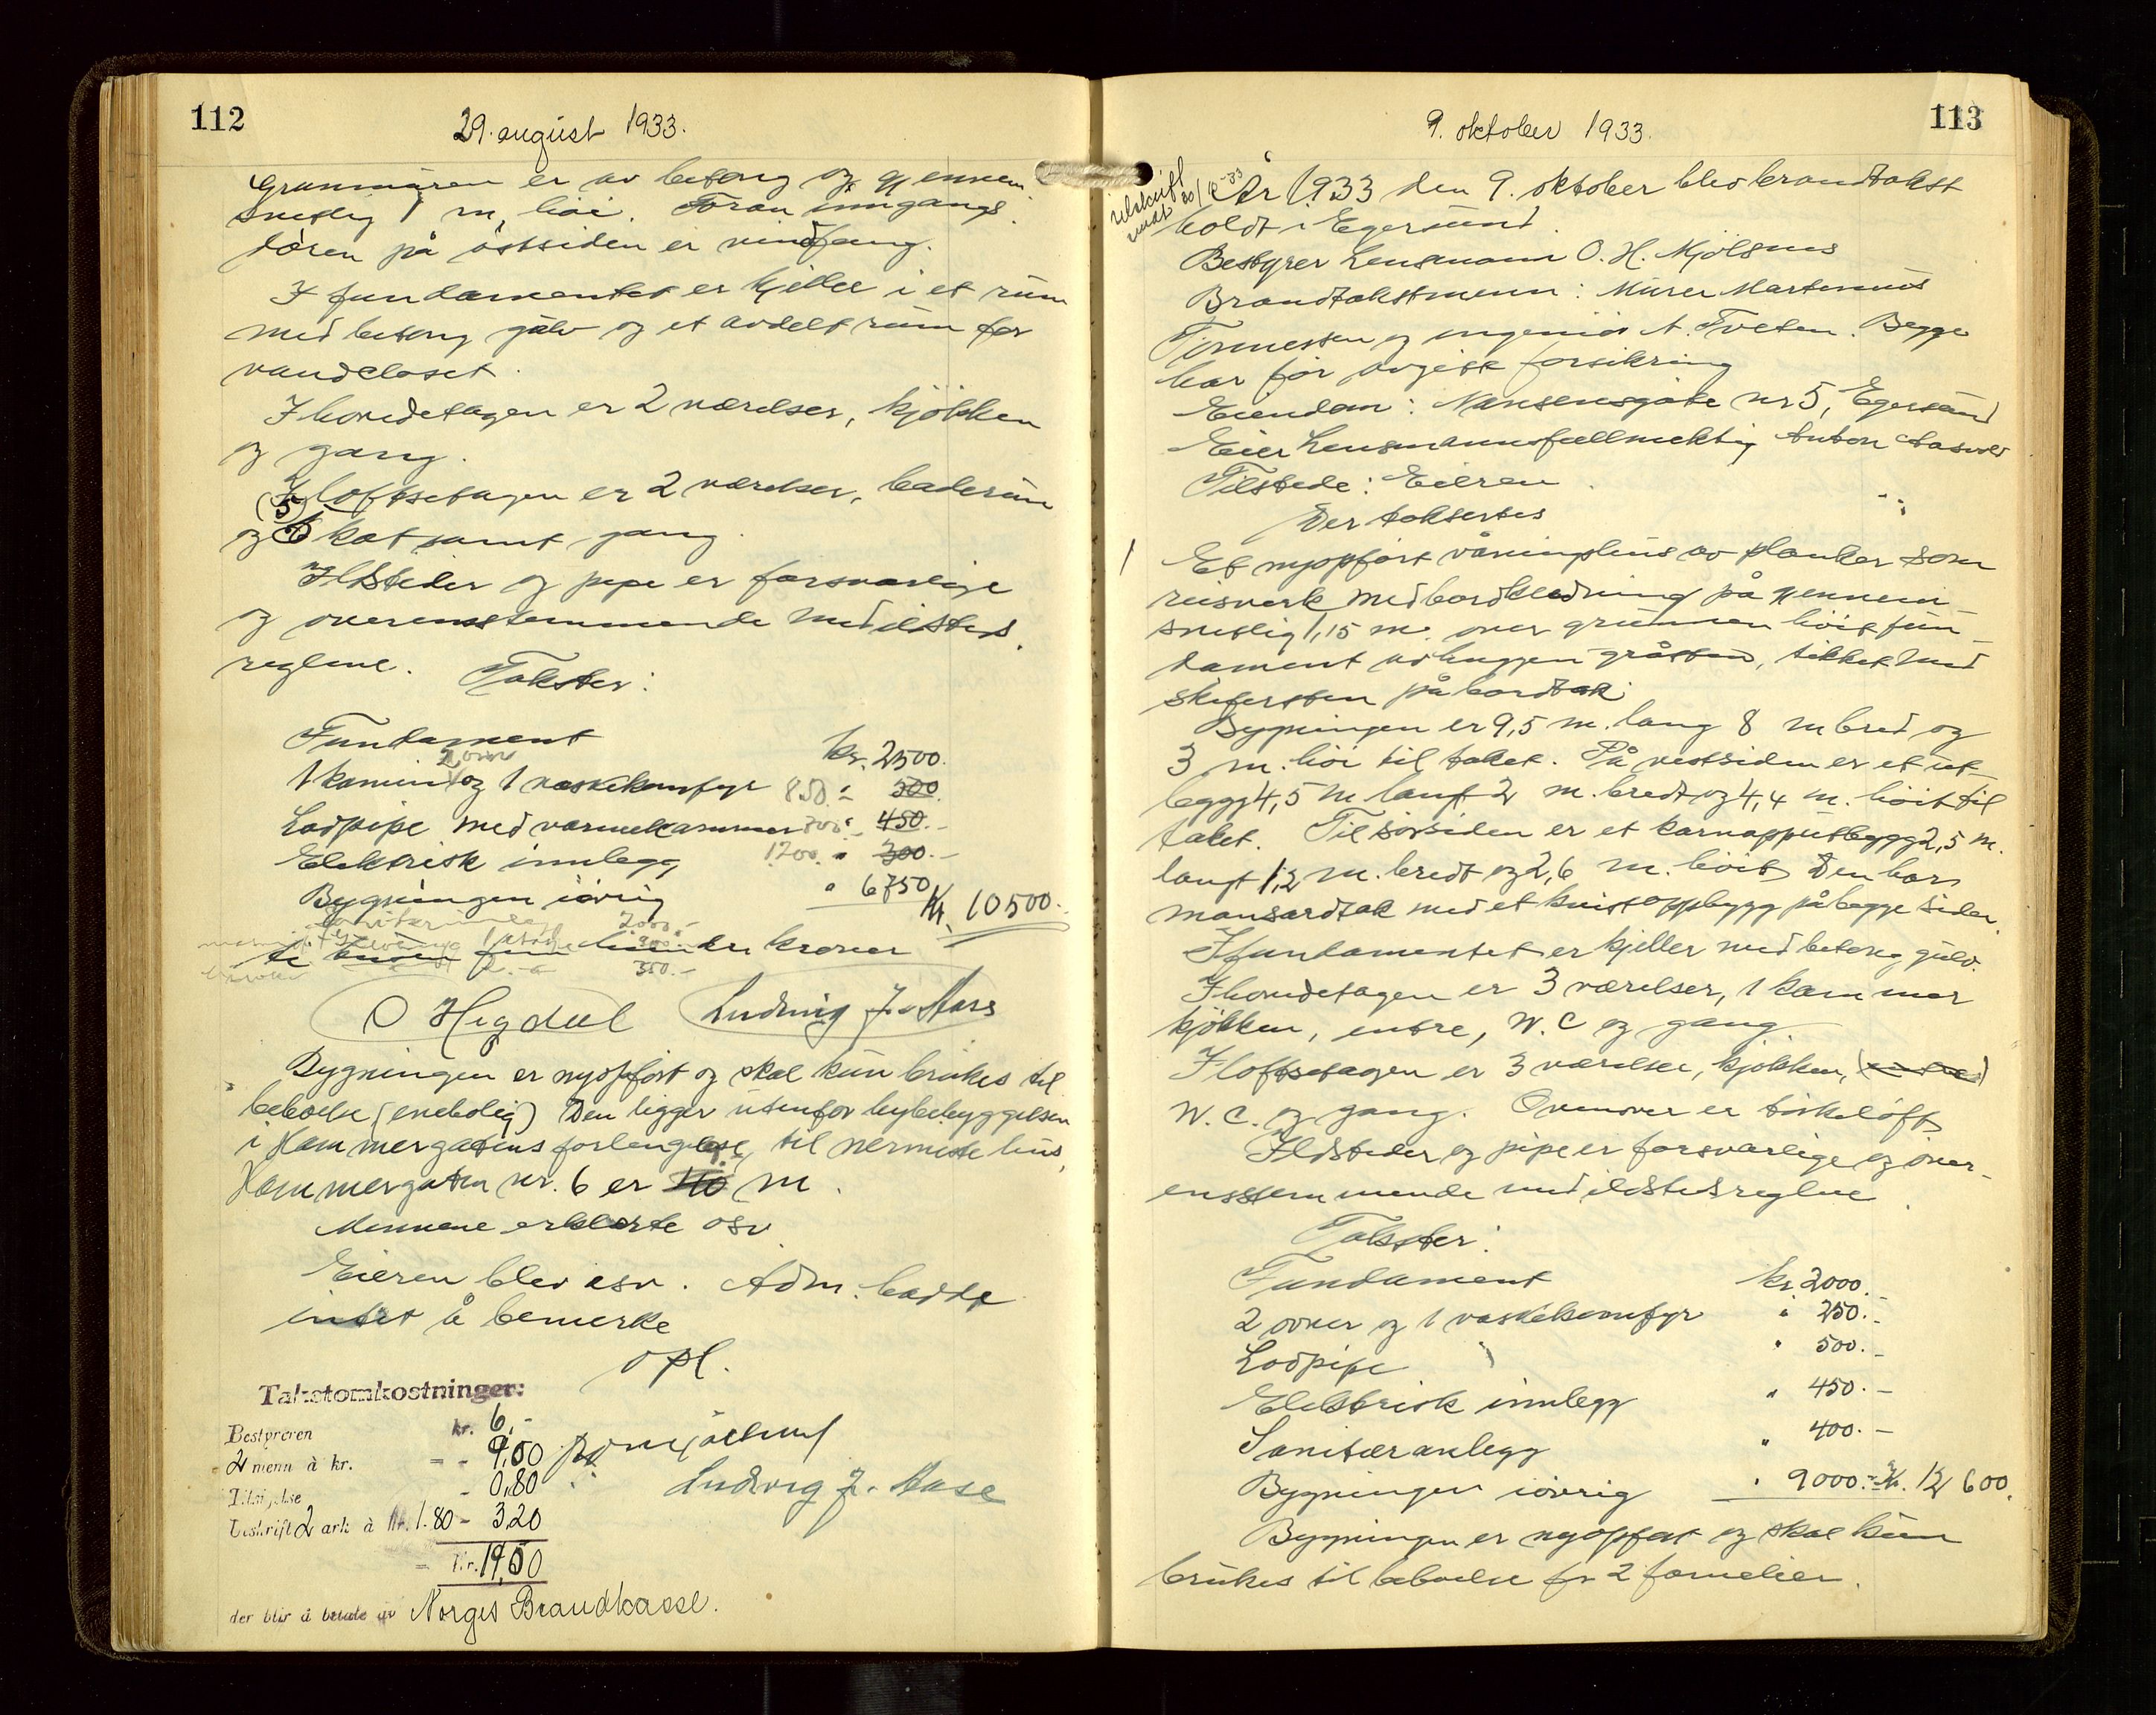 112
29. august 1933.
Grunmüren er av betong og gjennem
snitlig 1 m. höi. Foran inngangs
dören på östsiden er vindfang.
I fundamentet er kjeller i et rüm
med betong gülv og et avdelt rüm for
vandcloset.
I hovedetagen er 2 værelser, kjökken
og gang.
I loftsetagen er 2 værelser, baderüm
(5)
og 6 kot samt gang.
Ildsteder og pipe er forsvarlige
og overensstemmende med ildsteds
reglene. Takster:
Fundament kr. 2500.
2 ovner
1 kamin og 1 vaskekomfyr 850.- 500.
Lodpipe med varmekammer 700.- 450.-
Elektrisk innlegg 1200. " 300.-
Bygningen iövrig " 6750 Kr. 10500.-
2000.-
900.-
ti tusen fem hundre kroner
350.-
O Hegdal Ludvig J. Aase
Bygningen er nyopfört og skal kün brükes til
beboelse (enebolig) Den ligger ütenfor bybebyggelsen
i Hammergatens forlengelse, til nermeste hüs,
Hammergaten nr. 6 er 40 m.
Mennene erklærte osv
Eieren blev osv. Adm. hadde
intet å bemerke
Opl.
Takstomkostninger:
Bestyreren kr. 6,-
2 menn à kr. = - 9,50
Tilsigelse - 0,80
Utskrift 2 ark à kr. 1.80 - 3,20
= kr. 19,50
Ludvig J. Aase
der blir å betale av Norges Brandkasse.
113
9. oktober 1933.
utskrift
År 1933 den 9. oktober blev brandtakst
holdt i Egersund.
Bestyrer Lensmann O. H. Mjölsnes
Brandtakstmenn: Mürer Martinius
Tönnessen og ingeniör A. Tveten. Begge
har för avgitt forsikring
Eiendom: Nansensgate nr 5, Egersund
Eier Lensmannsfullmektig Anton Aasvold
Tilstede: Eieren.
Der taksertes
1 Et nyopfört våningshüs av planker som
reisverk med bordkledning på gjennem-
snitlig 1,15 m. over grunnen höit fün-
dament av huggen gråsten, tekket med
skifersten på bordtak.
Bygningen er 9,5 m. lang 8 m bred og
3 m. höi til taket. På vestsiden er et ut-
bygg 4,5 m langt 2 m. bredt og 4,4 m. höit til
taket. Til sörsiden er et karnapputbygg 2,5 m.
langt 1,2 m. bredt og 2,6 m. höit. Den har
mansardtak med et kvistoppbygg på begge sider.
I fundamentet er kjeller med betong gülv.
I hovedetagen er 3 værelser, 1 kammer
kjökken, entre, W.C og gang
I loftsetagen er 3 værelser, kjökken, (entre)
W.C. og gang. Ovenover er törkeloft
Ildsteder og pipe er forsvarlige og over-
ensstemmende med ildstedsreglene.
Takster:
Fundament kr 2000.-
2 ovner og 1 vaskekomfyr " 250.-
Lodpipe " 500.-
Elektrisk innlegg " 450.-
Sanitæranlegg " 400.-
Bygningen iövrig " 9000.- Kr. 12 600.
Bygningen er nyopfört og skal kün
brükes til beboelse for 2 familier.